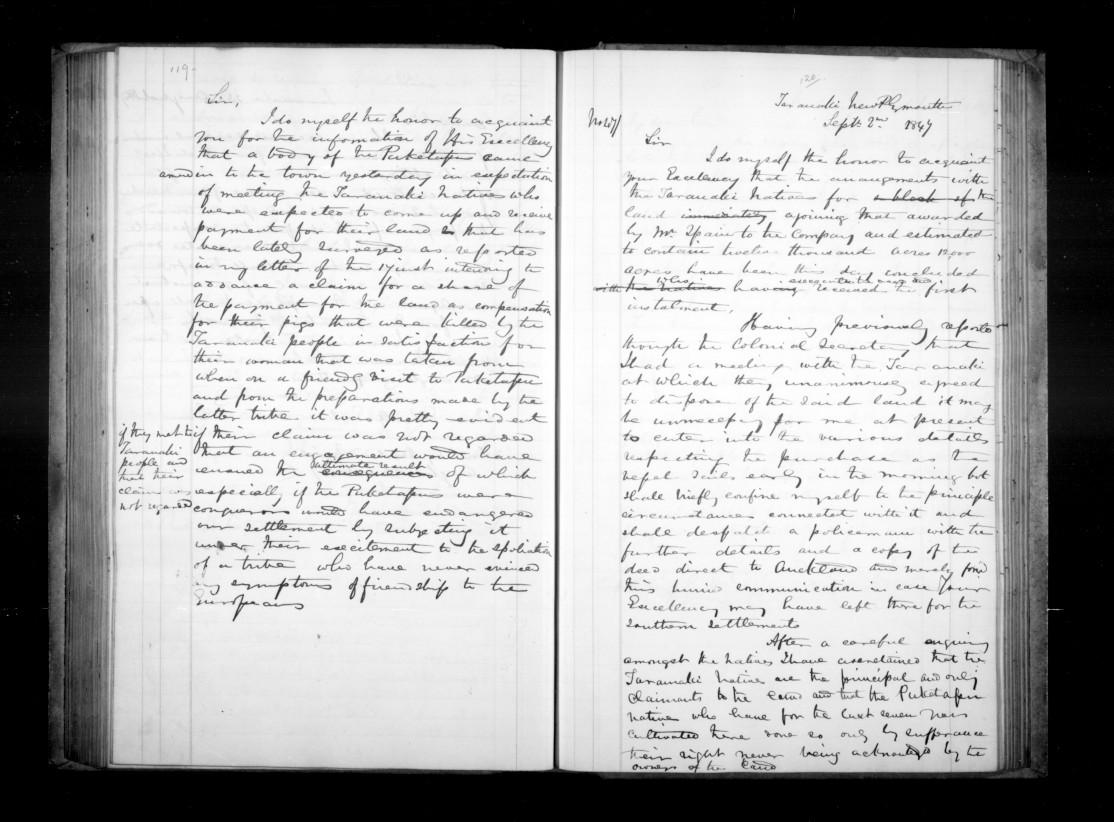 119
Sir,
I do myself the honor to acquaint
you for the information of His Excellency
that a body of the Puketapu came
armed in to the town yesterday in expectation
of meeting the Taranaki Natives who
were expected to come up and receive
payment for their land that has
been lately surveyed as reported
in my letter of the 17 inst. intending to
advance a claim for a share of
the payment for the land as compensation
for their pigs that were killed by the
Taranaki people in satisfaction for
their woman that was taken from
when on a friendly visit to Puketapu
and from the preparations made by the
latter tribe it was pretty evident
if they met the
Taranaki
people and
that their
claim was
not regarded
if their claim was not regarded
that an engagement would have
ensued the consequences ultimate result of which
especially if the Puketapus were
conquerors would have endangered
our settlement by subjecting it
under their excitement to the spoliation
of a tribe who have never evinced
any symptoms of friendship to the
Europeans
120
Taranaki New Plymouth
Septr 2nd 1847
No 27/
Sir
I do myself the honor to acquaint
your Excellency that the arrangements with
the Taranaki Natives for a block of the
land immediately ajoining that awarded
by Mr Spain to the Company and estimated
to contain twelve thousand acres 12,000
acres have been this day concluded
with the Natives who having received the first
instalment,
Having previously reported
through the Colonial Secretary that
I had a meeting with the Taranaki
at which they unanimously agreed
to dispose of the said land it may
be unnecessary for me at present
to enter into the various details
respecting the purchase as the
vessel sails early in the morning but
shall briefly confine myself to the principle
circumstances connected with it and
shall despatch a policeman with the
further details and a copy of the
deed direct to Auckland this merely
this communication in case Your
Excellency may have left there for the
Southern Settlements
After a careful enquiry
amongst the natives I have ascertained that the
Taranaki Natives are the principal and only
claimants to the land and that the Puketapu
natives who have for the last seven years
cultivated there done so only by sufferance
their right never being acknowledged by the
owners of the land